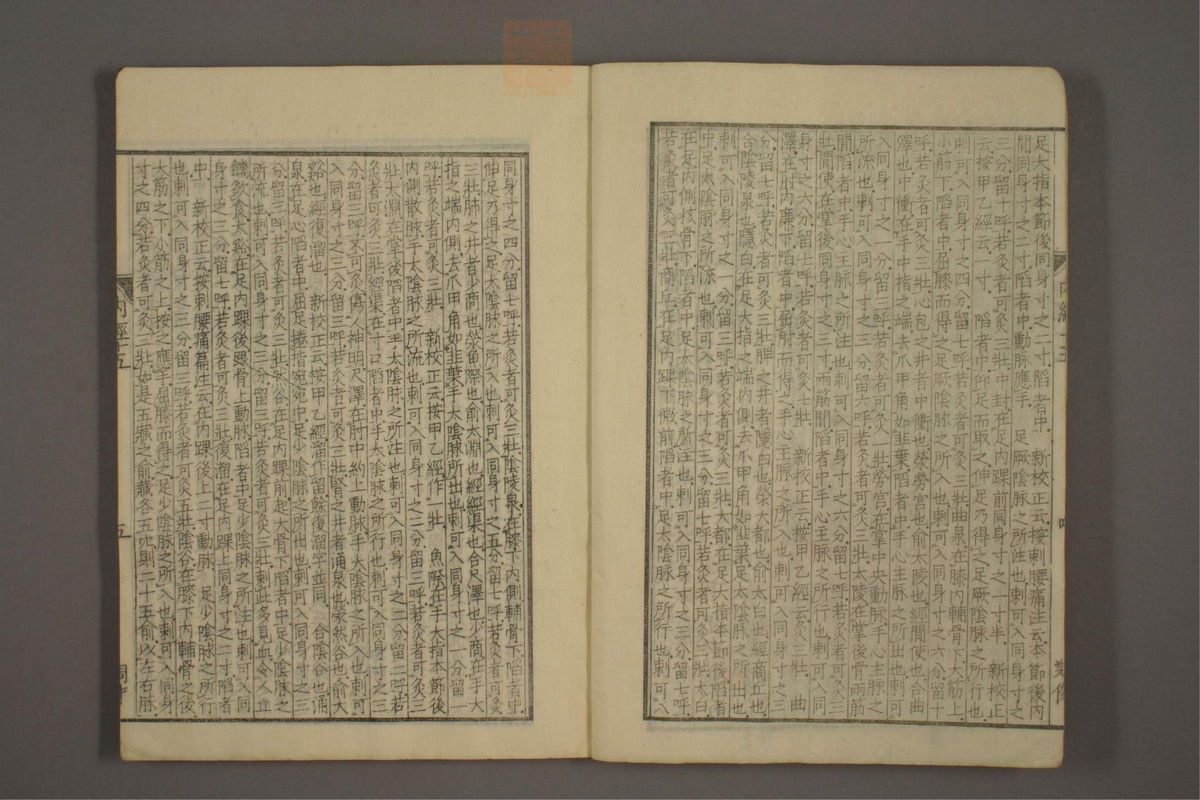 足大指本節後同身寸之二寸陷者中 新校正云按刺腰痛注云本節後內
間同身寸之二寸陷者中動脉應手 足厥陰脉之所注也刺可入同身寸之
三分留十呼若灸者可灸三壯中封在足內踝前同身寸之一寸半 新校正
云按甲乙經云一寸 陷者中仰足而取之伸足乃得之足厥陰脉之所行也
刺可入同身寸之四分留七呼若灸者可灸三壯曲泉在膝內輔骨下大筋上
小筋下陷者中屈膝而得之足厥陰脉之所入也刺可入同身寸之六分留十
呼若灸者可灸三壯心包之井者中衝也滎勞宮也俞太陵也經間使也合曲
澤也中衝在手中指之端去爪甲角如韭葉陷者中手心主脉之所出也刺可
入同身寸之一分留三呼若灸者可灸一壯勞宮在掌中央動脉手心主脉之
所流也刺可入同身寸之三分留六呼若灸者可灸三壯太陵在掌後骨兩筋
間陷者中手心主脉之所注也刺可入同身寸之六分留七呼若灸者可灸三
壯間使在掌後同身寸之三寸兩筋間陷者中手心主脉之所行也刺可入同
身寸之六分留七呼若灸者可灸七壯 新校正云按甲乙經云灸三壯 曲
澤在肘內廉下陷者中屈肘而得之手心主脉之所入也刺可入同身寸之三
分留七呼若灸者可灸三壯脾之井者隱白也滎大都也俞太白也經商丘也
合陰陵泉也隱白在足大指之端內側去爪甲角如韭葉足太陰脉之所出也
刺可入同身寸之一分留三呼若灸者可灸三壯大都在足大指本節後陷者
中足太陰脉之所流也刺可入同身寸之三分留七呼若灸者可灸三壯太白
在足內側核骨下陷者中足太陰脉之所注也刺可入同身寸之三分留七呼
若灸者可灸三壯商丘在足內踝下微前陷者中足太陰脉之所行也刺可入
同身寸之四分留七呼若灸者可灸三壯陰陵泉在膝下內側輔骨下陷者中
伸足乃得之足太陰脉之所入也刺可入同身寸之五分留七呼若灸者可灸
三壯肺之井者少商也滎魚際也俞太淵也經經渠也合尺澤也少商在手大
指之端內側去爪甲角如韭葉手太陰脉之所出也刺可入同身寸之一分留一
呼若灸者可灸三壯 新校正云按甲乙經作一壯 魚際在手大指本節後
內側散脉手太陰脉之所流也刺可入同身寸之二分留三呼若灸者可灸三
壯太淵在掌後陷者中手太陰脉之所注也刺可入同身寸之二分留二呼若
灸者可灸三壯經渠在寸口陷者中手太陰脉之所行也刺可入同身寸之三
分留三呼不可灸傷人神明尺澤在肘中約上動脉手太陰脉之所入也刺可
入同身寸之三分留三呼若灸者可灸三壯腎之井者涌泉也滎然谷也俞太
谿也經復溜也 新校正云按甲乙經溜作留餘復溜字並同 合陰谷也涌
泉在足心陷者中屈足捲指宛宛中足少陰脉之所出也刺可入同身寸之三
分留三呼若灸者可灸三壯然谷在足內踝前起大骨下陷者中足少陰脉之
所流也刺可入同身寸之三分留三呼若灸者可灸三壯刺此多見血令人立
饑欲食太谿在足內踝後跟骨上動脉陷者中足少陰脉之所注也刺可入同
身寸之三分留七呼若灸者可灸三壯復溜在足內踝上同身寸之二寸陷者
中 新校正云按刺腰痛篇注云在內踝後上二寸動脉 足少陰脉之所行
也刺可入同身寸之三分留三呼若灸者可灸五壯陰谷在膝下內輔骨之後
大筋之下小筋之上按之應手屈膝而得之足少陰脉之所入也刺可入同身
寸之四分若灸者可灸三壯如是五藏之俞藏各五穴則二十五俞以左右脉
內經五
五